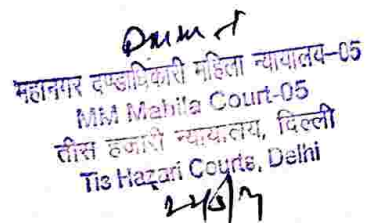 महानगर दण्डाधिकारी महिला न्यायालय-05
MM Mahila Court-05
तीस हजारी न्यायालय, दिल्ली
Tis Hazari Courts, Delhi